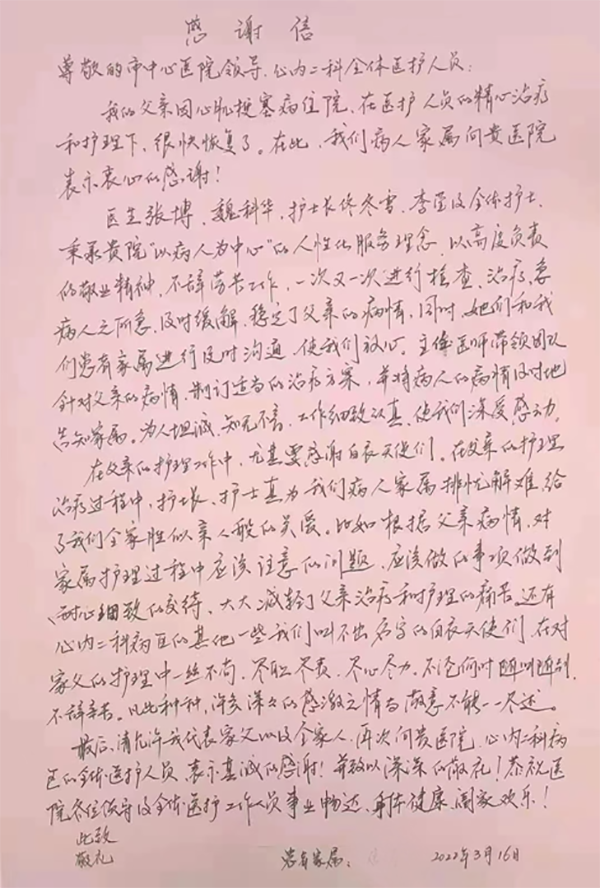 感谢信
尊敬的市中心医院领导、心内二科全体医护人员:
我的父亲因心肌梗塞病住院,在医护人员的精心治疗
和护理下,很快恢复了。在此,我们病人家属向贵医院
表示衷心的感谢!
医生张博、魏科华,护士长佟冬雪、李莹及全体护士,
秉承贵院"以病人为中心"的人性化服务理念,以高度负责
的敬业精神,不辞劳苦工作,一次又一次进行检查、治疗,急
病人之所急,及时缓解、稳定了父亲的病情,同时,她们和我
们患者家属进行及时沟通,使我们放心。主任医师带领团队
针对父亲的病情,制订适当的治疗方案,并将病人的病情及时地
告知家属。为人坦诚,知无不言,工作细致认真,使我们深受感动。
在父亲的护理工作中,尤其要感谢白衣天使们。在父亲的护理
治疗过程中,护士长、护士真为我们病人家属排忧解难,给
了我们全家胜似亲人般的关爱。比如根据父亲病情,对
家属护理过程中应该注意的问题,应该做的事项做到
耐心细致的交待,大大减轻了父亲治疗和护理的痛苦。还有
心内二科病区的其他一些我们叫不出名字的白衣天使们,在对
家父的护理中一丝不苟,尽职尽责,尽心尽力,不论何时随叫随到,
不辞辛苦。凡此种种,许多深深的感激之情与敬意不能一一尽述。
最后,请允许我代表家父以及全家人,再次向贵医院、心内二科病
区的全体医护人员,表示真诚的感谢!并致以深深的敬礼!恭祝医
院各位领导及全体医护工作人员事业畅达、身体健康、阖家欢乐!
此致
敬礼
患者家属: 2022年3月16日